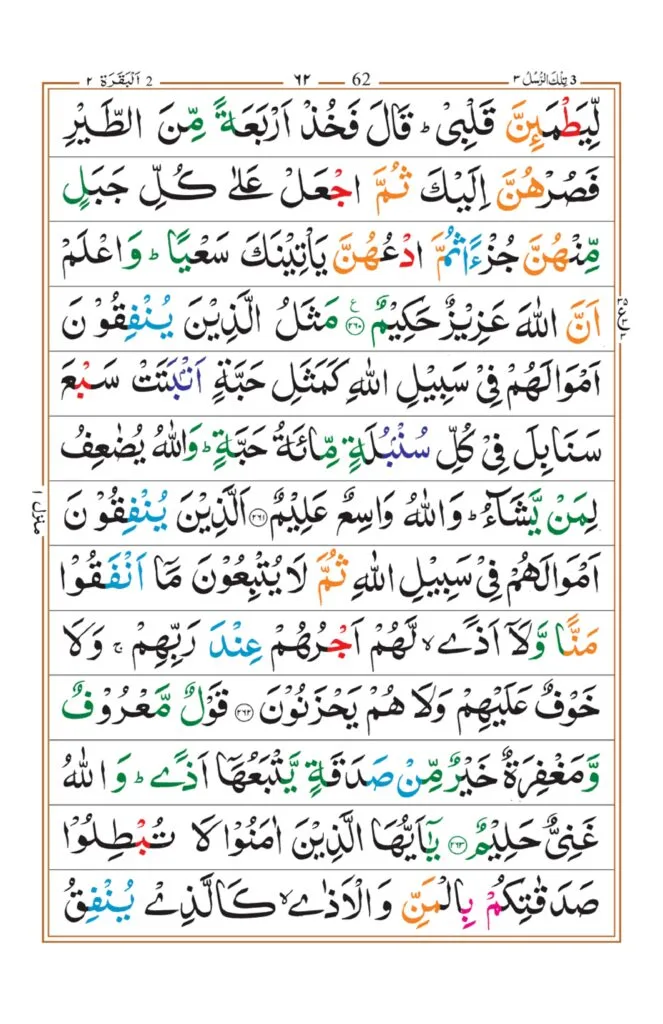 3 تِلْكَ الرُّسُلُ ٣ 62 ٦٢ 2 اَلْبَقَرَة ٢
لِّيَطْمَئِنَّ قَلْبِىْ ؕ قَالَ فَخُذْ اَرْبَعَةً مِّنَ الطَّيْرِ
فَصُرْهُنَّ اِلَيْكَ ثُمَّ اجْعَلْ عَلٰى كُلِّ جَبَلٍ
مِّنْهُنَّ جُزْءًا ثُمَّ ادْعُهُنَّ يَاْتِيْنَكَ سَعْيًا ؕ وَاعْلَمْ
اَنَّ اللّٰهَ عَزِيْزٌ حَكِيْمٌ ۧ ﴿۲۶۰﴾ مَثَلُ الَّذِيْنَ يُنْفِقُوْنَ
اَمْوَالَهُمْ فِىْ سَبِيْلِ اللّٰهِ كَمَثَلِ حَبَّةٍ اَنْۢبَتَتْ سَبْعَ
سَنَابِلَ فِىْ كُلِّ سُنْۢبُلَةٍ مِّائَةُ حَبَّةٍ ؕ وَاللّٰهُ يُضٰعِفُ
لِمَنْ يَّشَآءُ ؕ وَاللّٰهُ وَاسِعٌ عَلِيْمٌ ﴿۲۶۱﴾ اَلَّذِيْنَ يُنْفِقُوْنَ
اَمْوَالَهُمْ فِىْ سَبِيْلِ اللّٰهِ ثُمَّ لَا يُتْبِعُوْنَ مَاۤ اَنْفَقُوْا
مَنًّا وَّلَاۤ اَذًى ۙ لَّهُمْ اَجْرُهُمْ عِنْدَ رَبِّهِمْ ۚ وَلَا
خَوْفٌ عَلَيْهِمْ وَلَا هُمْ يَحْزَنُوْنَ ﴿۲۶۲﴾ قَوْلٌ مَّعْرُوْفٌ
وَّمَغْفِرَةٌ خَيْرٌ مِّنْ صَدَقَةٍ يَّتْبَعُهَاۤ اَذًى ؕ وَاللّٰهُ
غَنِىٌّ حَلِيْمٌ ﴿۲۶۳﴾ يٰۤاَيُّهَا الَّذِيْنَ اٰمَنُوْا لَا تُبْطِلُوْا
صَدَقٰتِكُمْ بِالْمَنِّ وَالْاَذٰى ۙ كَالَّذِىْ يُنْفِقُ
منزل ١